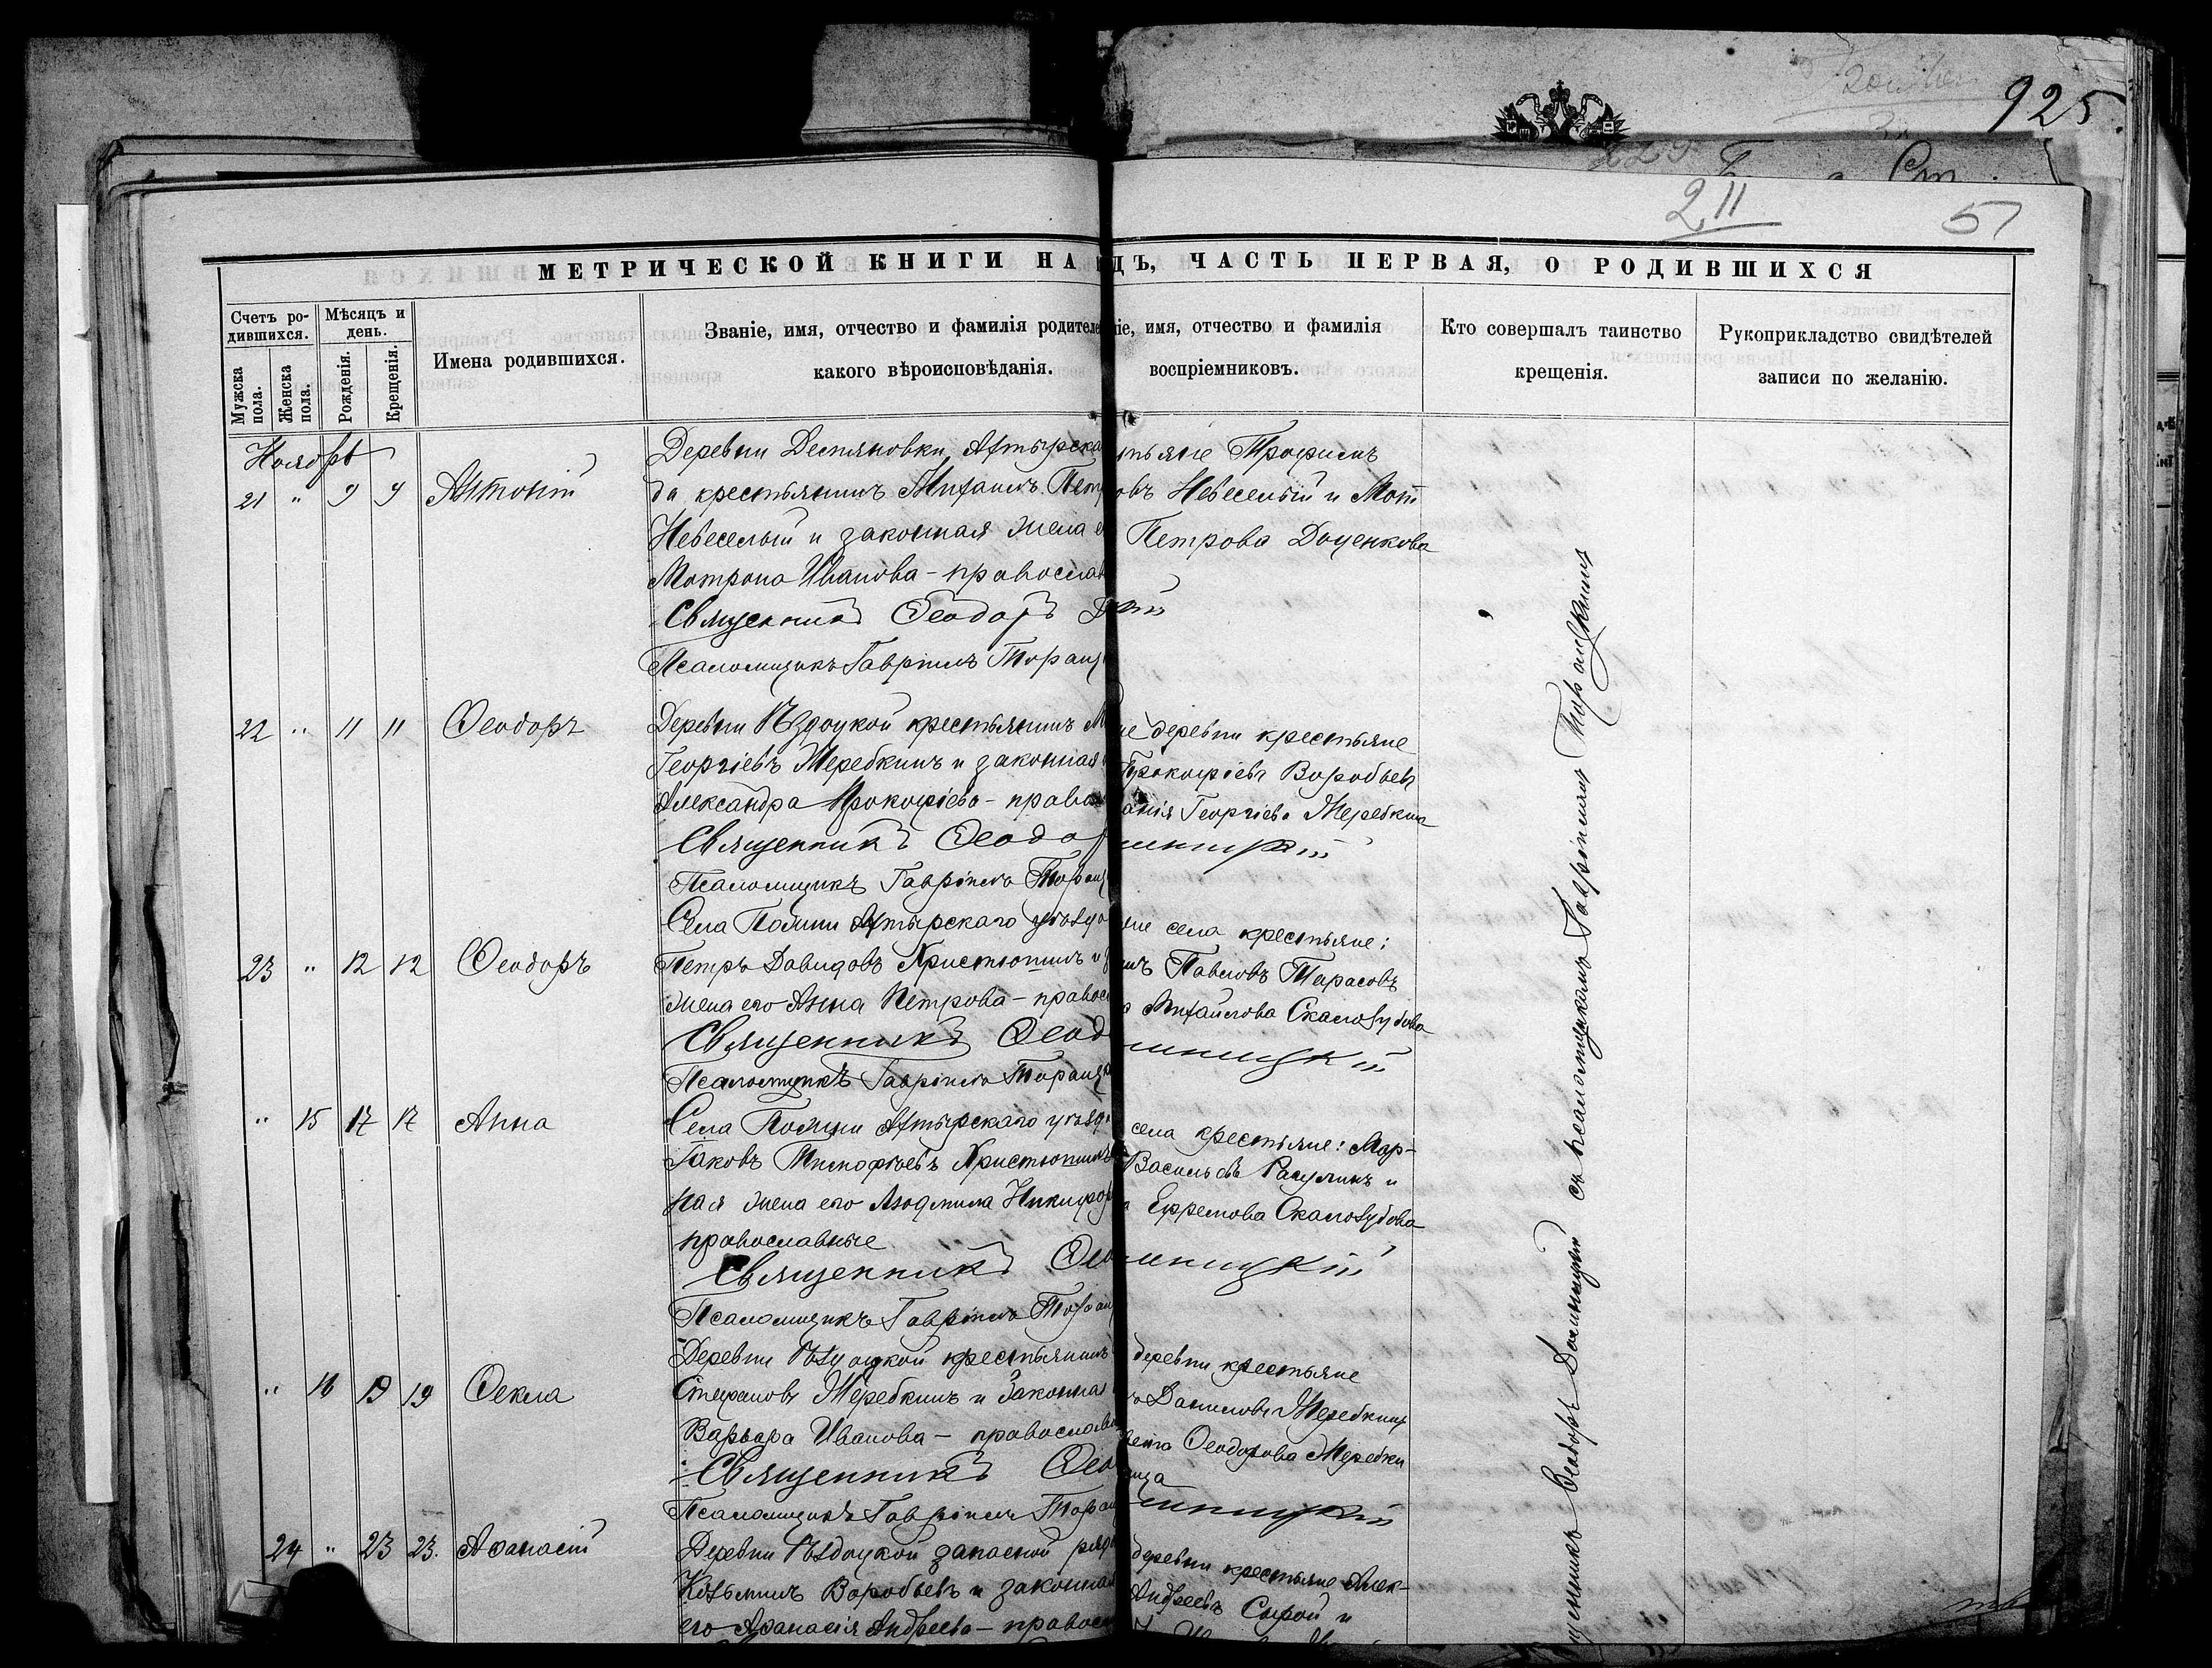 925.
211
57
МЕТРИЧЕСКОЙ КНИГИ НА ДЪ, ЧАСТЬ ПЕРВАЯ, О РОДИВШИХСЯ
Счетъ ро-
дившихся.
Мужска
пола.
Женска
пола.
Мѣсяцъ и
день.
Рожденія.
Крещенія.
Имена родившихся.
Званіе, имя, отчество и фамилія родителе
какого вѣроисповѣданія.
іе, имя, отчество и фамилія
воспріемниковъ.
Кто совершалъ таинство
крещенія.
Рукоприкладство свидѣтелей
записи по желанію.
Ноябрь
21 " 9 9 Антоній
Деревни Деспяновки, Ахтырска
да крестьянинъ Михаилъ Петр
Невеселый и законная жена е
Мотрона Иванова - православ
Священникъ Ѳеодоръ
Псаломщикъ Гавріилъ Торан
тьяне Трофимъ
овъ Невеселый и Мот
Петрова Доценкова
кій
22 " 11 11 Ѳеодоръ
Деревни Ѣздоцкой крестьянинъ М
Георгіевъ Жеребкинъ и законная
Александра Прокофіева - право
Священникъ Ѳеодор
Псаломщикъ Гавріилъ Торан
же деревни крестьяне
Прокофіевъ Воробьевъ
анія Георгіева Жеребкина
мницкій
23 " 12 12 Ѳеодоръ
Села Поляни Ахтырскаго уѣзда
Петръ Давидовъ Христюшинъ и
жена его Анна Петрова - правос
Священникъ Ѳеод
Псаломщикъ Гавріилъ Торан
же села крестьяне:
Павловъ Тарасовъ
Михайлова Скалозубова
мницкій
" 15 17 17 Анна
Села Поляни Ахтырскаго уѣзда
Іаковъ Тимофѣевъ Христюшинъ
ная жена его Людмила Никифоро
православные
Священникъ Ѳео
Псаломщикъ Гавріилъ Торан
села крестьяне: Мар-
Васильевъ и
Ефремова Скалозубова
мницкій
" 16 19 19 Ѳекла
Деревни Ѣздоцкой крестьянинъ
Стефановъ Жеребкинъ и законная
Варвара Иванова - православн
Священникъ Ѳео
Псаломщикъ Гавріилъ Торан
деревни крестьяне
Даниловъ Жеребкинъ
Ѳеодорова Жеребки
мницкій
24 " 23 23. Аѳанасій
Деревни Ѣздоцкой запасной рядо
Козьминъ Воробьевъ и законная
его Аѳанасія Андреева - правос
деревни крестьяне Алек-
Андреевъ Сырой и
Ѳеодоръ съ псаломщикомъ Гавріиломъ